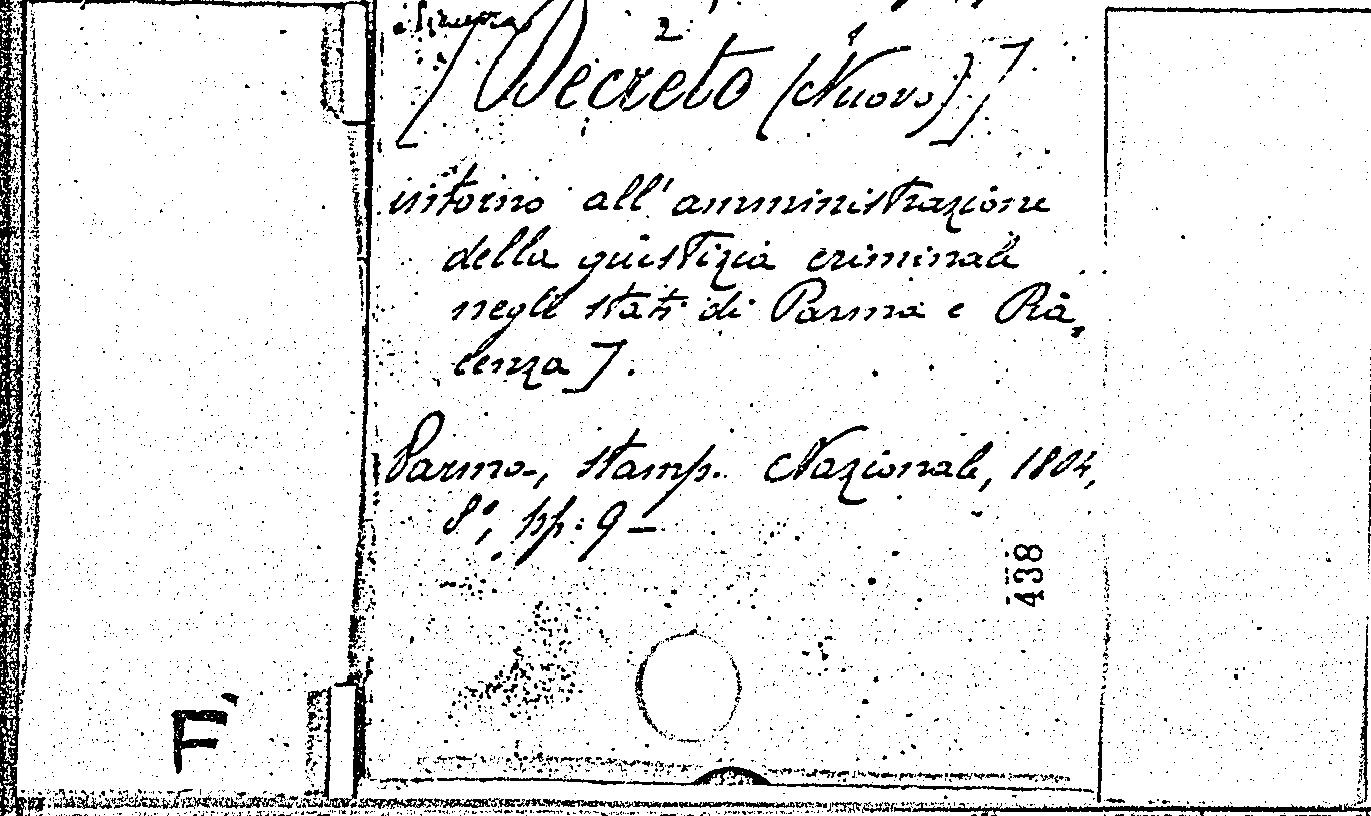 2 1
[Decreto (Nuovo)]
intorno all'amministrazione
della giustizia criminale
negli stati di Parma e Pia,
cenza].
Parma, stamp. Nazionale, 1804,
8°, pp: 9 –
438
F